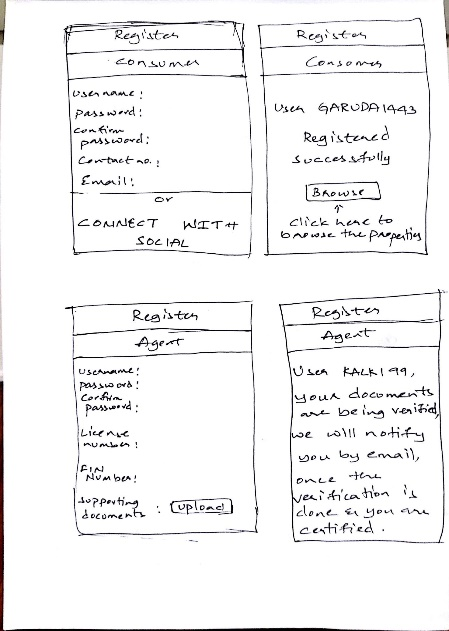 Register
Consumer
Username:
password:
Confirm
password:
Contact no.:
Email:
or
CONNECT WITH
SOCIAL
Register
Consomer
User GARUDA1443
Registered
successfully
BROWSE
click here to
browse the properties
Register
Agent
Username:
password:
Confirm
password:
License
number:
FIN
Number:
supporting
docoments : upload
Register
Agent
User KALKI99,
your docoments
are being verified,
we will notify
you by email,
once the
verification is
done & you are
certified.